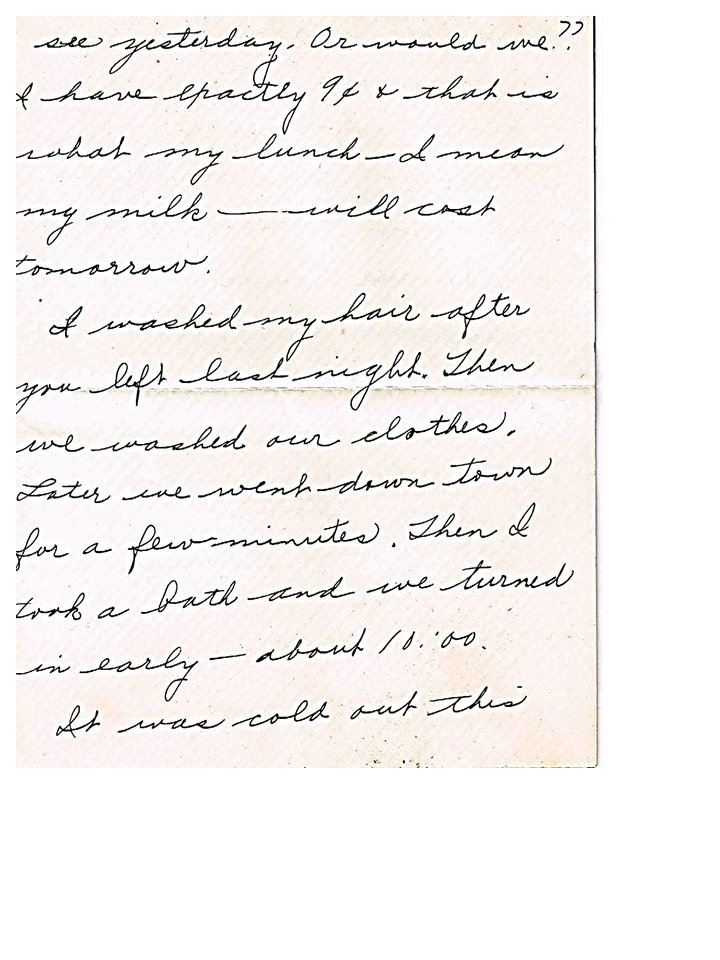 see yesterday. Or would we??
I have exactly 9¢ & that is
what my lunch — I mean
my milk — will cost
tomorrow.
I washed my hair after
you left last night. Then
we washed our clothes.
Later we went down town
for a few minutes. Then I
took a bath and we turned
in early — about 10:00.
It was cold out this